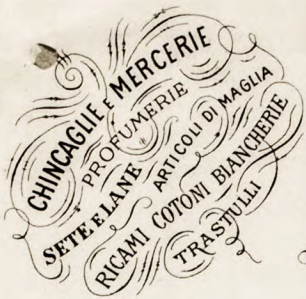 CHINCAGLIE E MERCERIE
PROFUMERIE
SETE E LANE
ARTICOLI DI MAGLIA
RICAMI COTONI BIANCHERIE
TRASTULLI